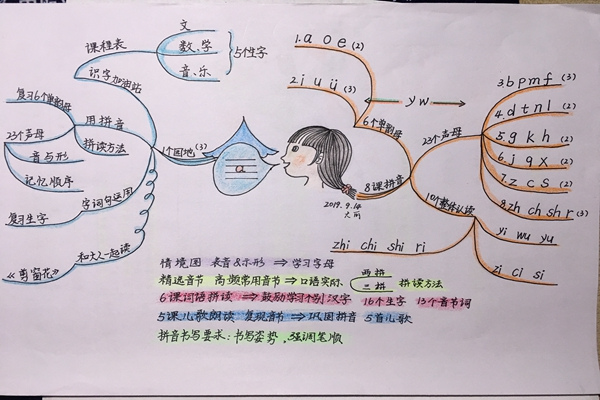 文
课程表
数、学
音、乐
5个生字
识字加油站
复习6个单韵母
用拼音
23个声母
拼读方法
音与形
记忆顺序
字词句运用
复习生字
和大人一起读
《剪窗花》
1个园地(3)
a
1.a o e (2)
2.i u ü (3)
y w
6个单韵母
23个声母
8课拼音
10个整体认读
3.b p m f (3)
4.d t n l (2)
5.g k h (2)
6.j q x (2)
7.z c s (2)
8.zh ch sh r (3)
yi wu yu
zi ci si
zhi chi shi ri
2019.9.14
情境图 表音&示形 ⇒ 学习字母
精选音节 高频常用音节 ⇒ 口语实际 两拼 三拼 拼读方法
6课词语拼读 ⇒ 鼓励学习个别汉字 16个生字 13个音节词
5课儿歌朗读 复现音节 ⇒ 巩固拼音 5首儿歌
拼音书写要求:书写姿势,强调笔顺